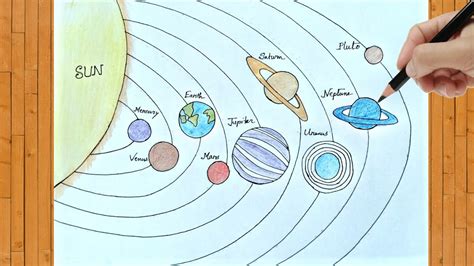 SUN
Mercury
Venus
Earth
Mars
Jupiter
Saturn
Uranus
Neptune
Pluto